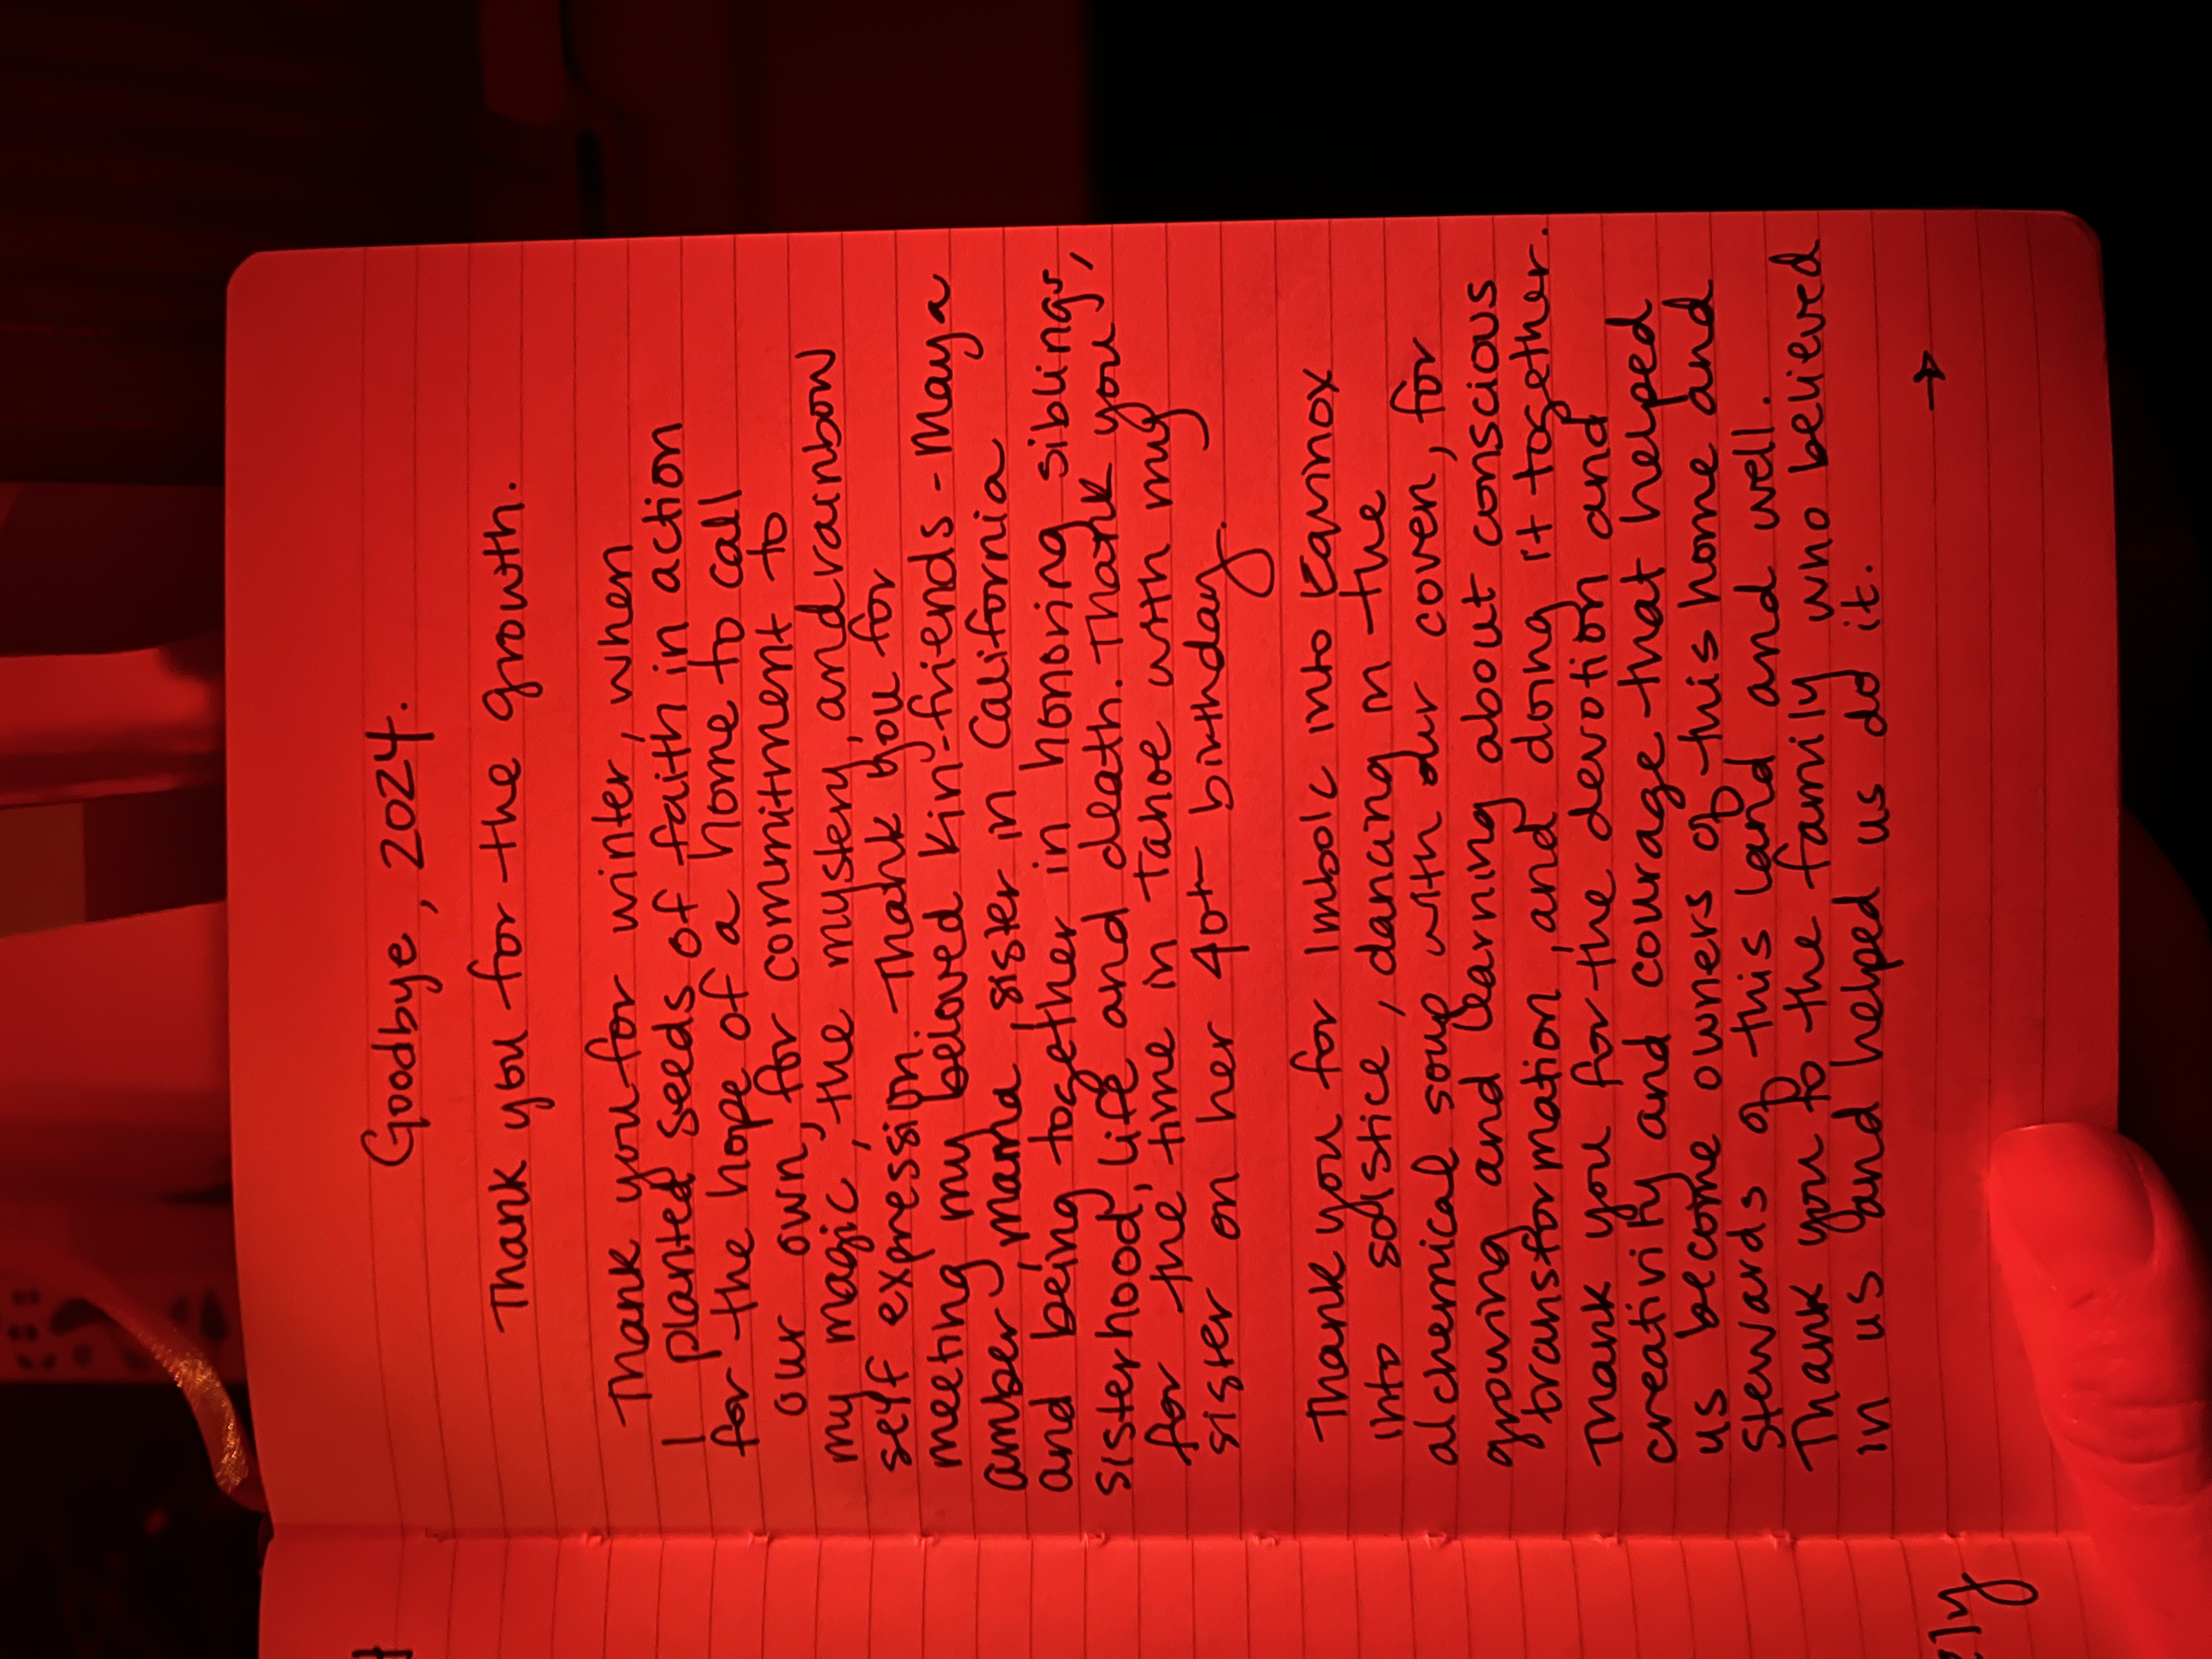 Goodbye, 2024.
Thank you for the growth.
Thank you for winter, when
I planted seeds of faith in action
for the hope of a home to call
our own, for commitment to
my magic, the mystery, and rainbow
self expression. Thank you for
meeting my beloved kin-friends - Maya
amber mama, sister in California
and being together in honoring siblings,
sisterhood, life and death. Thank you,
for the time in Tahoe with my
sister on her 40th birthday.
Thank you for Imbolc into Equinox
into solstice, dancing in the
alchemical soup with our coven, for
growing and learning about conscious
transformation, and doing it together.
Thank you for the devotion and
creativity and courage that helped
us become owners of this home and
stewards of this land and well.
Thank you to the family who believed
in us and helped us do it.
→
ely